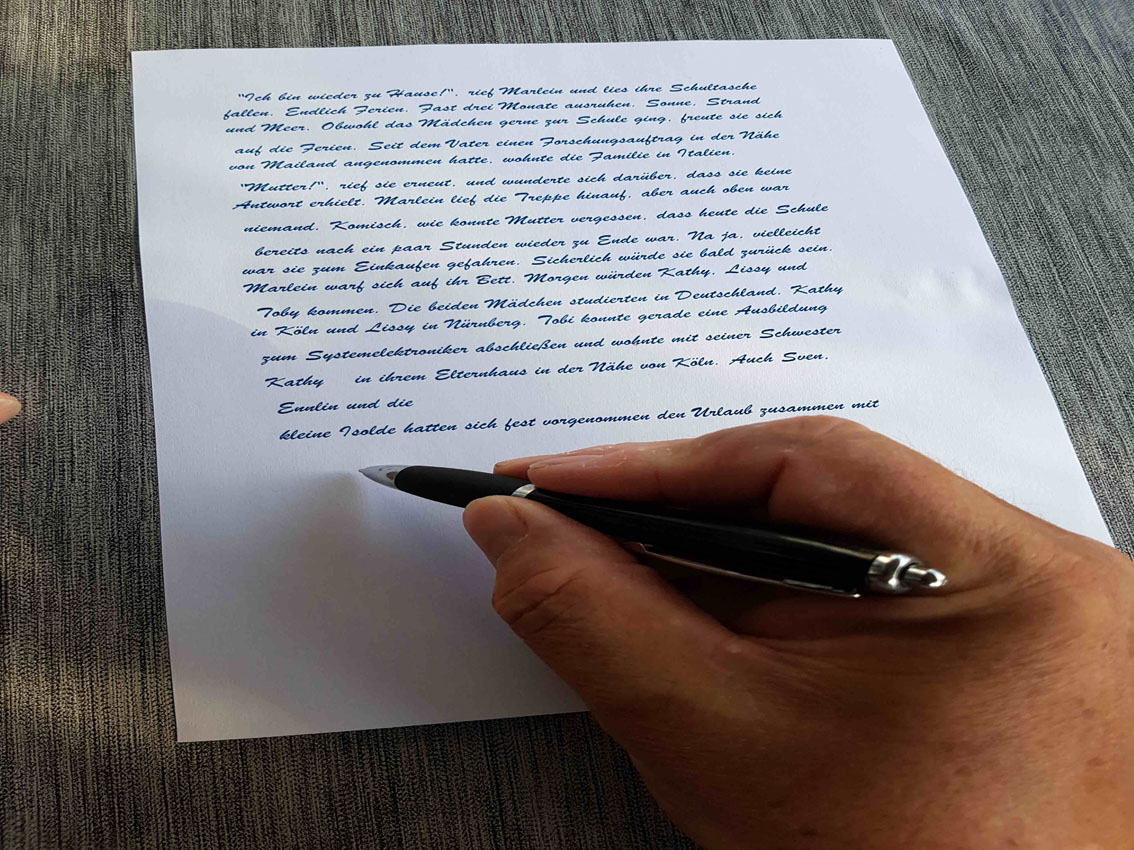 "Ich bin wieder zu Hause!", rief Marlein und lies ihre Schultasche
fallen. Endlich Ferien. Fast drei Monate ausruhen. Sonne, Strand
und Meer. Obwohl das Mädchen gerne zur Schule ging, freute sie sich
auf die Ferien. Seit dem Vater einen Forschungsauftrag in der Nähe
von Mailand angenommen hatte, wohnte die Familie in Italien.
"Mutter!", rief sie erneut, und wunderte sich darüber, dass sie keine
Antwort erhielt. Marlein lief die Treppe hinauf, aber auch oben war
niemand. Komisch, wie konnte Mutter vergessen, dass heute die Schule
bereits nach ein paar Stunden wieder zu Ende war. Na ja, vielleicht
war sie zum Einkaufen gefahren. Sicherlich würde sie bald zurück sein.
Marlein warf sich auf ihr Bett. Morgen würden Kathy, Lissy und
Toby kommen. Die beiden Mädchen studierten in Deutschland. Kathy
in Köln und Lissy in Nürnberg. Tobi konnte gerade eine Ausbildung
zum Systemelektroniker abschließen und wohnte mit seiner Schwester
Kathy in ihrem Elternhaus in der Nähe von Köln. Auch Sven,
Ennlin und die
kleine Isolde hatten sich fest vorgenommen den Urlaub zusammen mit